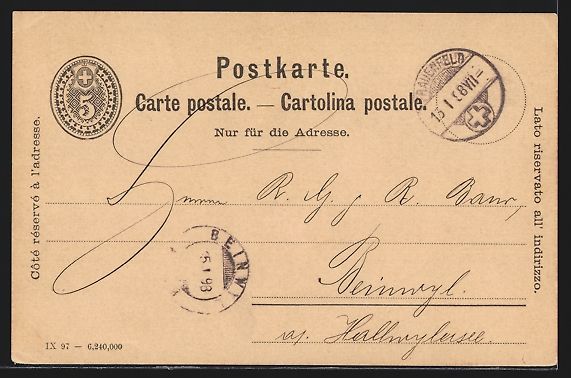 Postkarte.
Carte postale. — Cartolina postale.
Nur für die Adresse.
5
FRAUENFELD
15 I 98 VII–
Côté réservé à l'adresse.
Lato riservato all' indirizzo.
Herren R. G. & R.
BEINWIL
15 I 98
Beinwyl.
a/ Hallwylersee.
IX 97 — 6,240,000